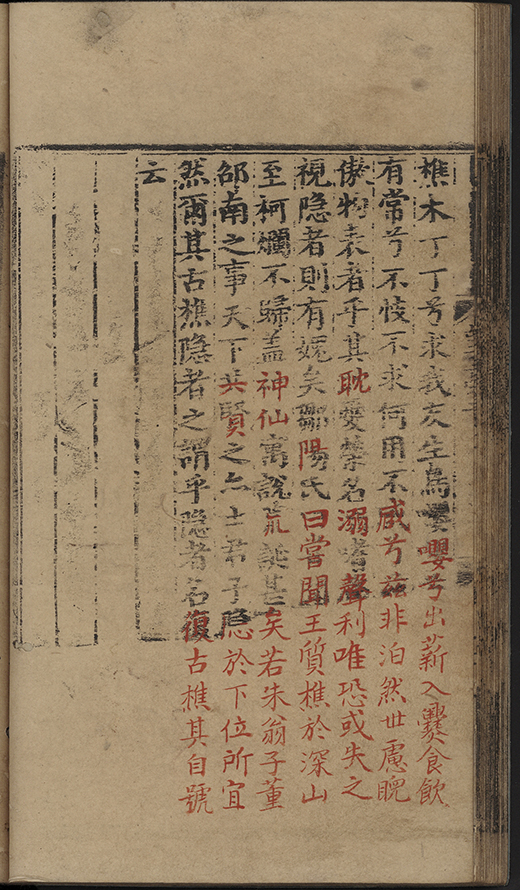 樵木丁丁兮求我友生鳥嚶嚶兮出薪入爨食飲
有常兮不忮不求何用不臧兮茲非泊然世慮睨
傲物表者乎其耽愛榮名溺嗜聲利唯恐或失之
視隐者則有媿矣鄱陽氏曰嘗聞王質樵於深山
至柯爛不歸盖神仙寓說荒誕甚矣若朱翁子董
邵南之事天下共賢之亦士君子隐於下位所宜
然爾其古樵隐者之謂乎隐者名復古樵其自號
云